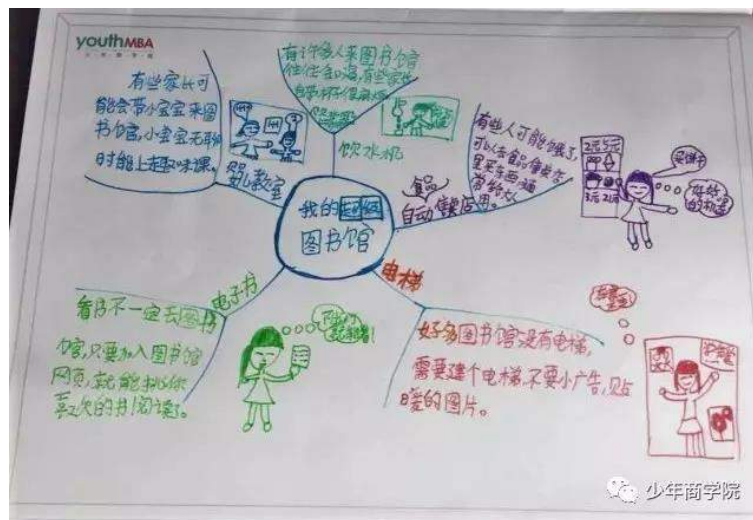 youthMBA
有些家长可
能会带小宝宝来图
书馆,小宝宝无聊
时能上趣味课。
婴儿教室
有许多人来图书馆
往往会口渴,有些家长
饮水机
有些人可能饿了,
可以去食品售卖店
里买东西
食品
自动售卖店
2元 5元
3元 2元
好好
的机器
我的
图书馆
电子书
看书不一定去图书
馆,只要加入图书馆
网页,就能找你
喜欢的书阅读了。
电梯
好多图书馆没有电梯,
需要建个电梯,不要小广告,贴
暖的图片。
少年商学院